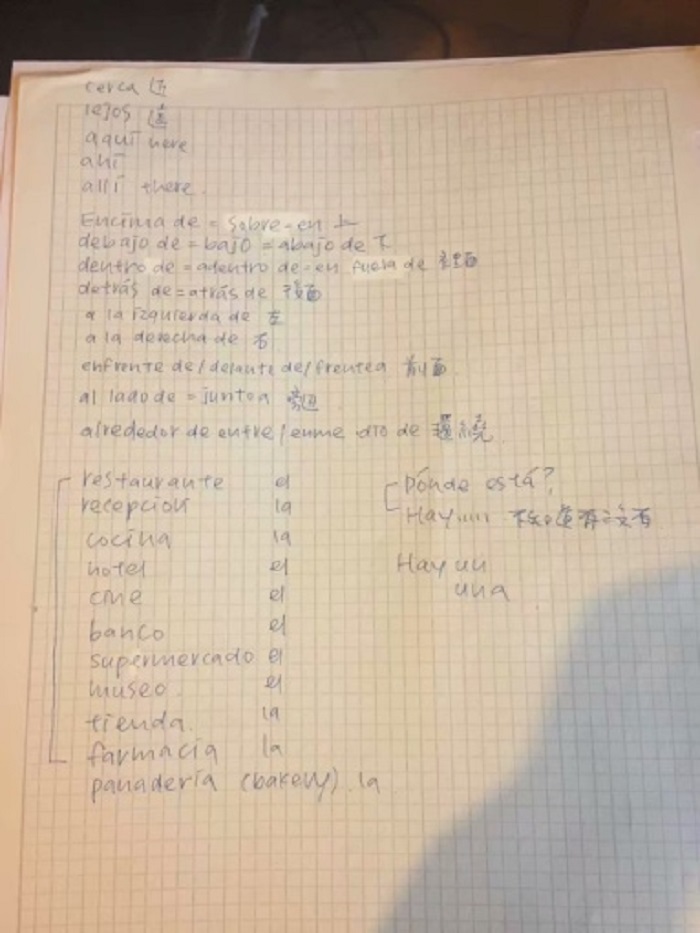 cerca 近
lejos 遠
aquí here
ahí
allí there.
Encima de = sobre-en 上
debajo de = bajo = abajo de 下
dentro de = adentro de-en fuera de 裡面
detrás de = atrás de 後面
a la izquierda de 左
a la derecha de 右
enfrente de/delante de/frentea 前面
al lado de = juntoa 旁边
alrededor de entre/enme dio de 環繞
restaurante el
recepción la
cocina la
hotel el
cine el
banco el
supermercado el
museo. el
tienda. la
farmacia la
panadería (bakery). la
Dónde está?
Hay..... 不知道有沒有
Hay un
una